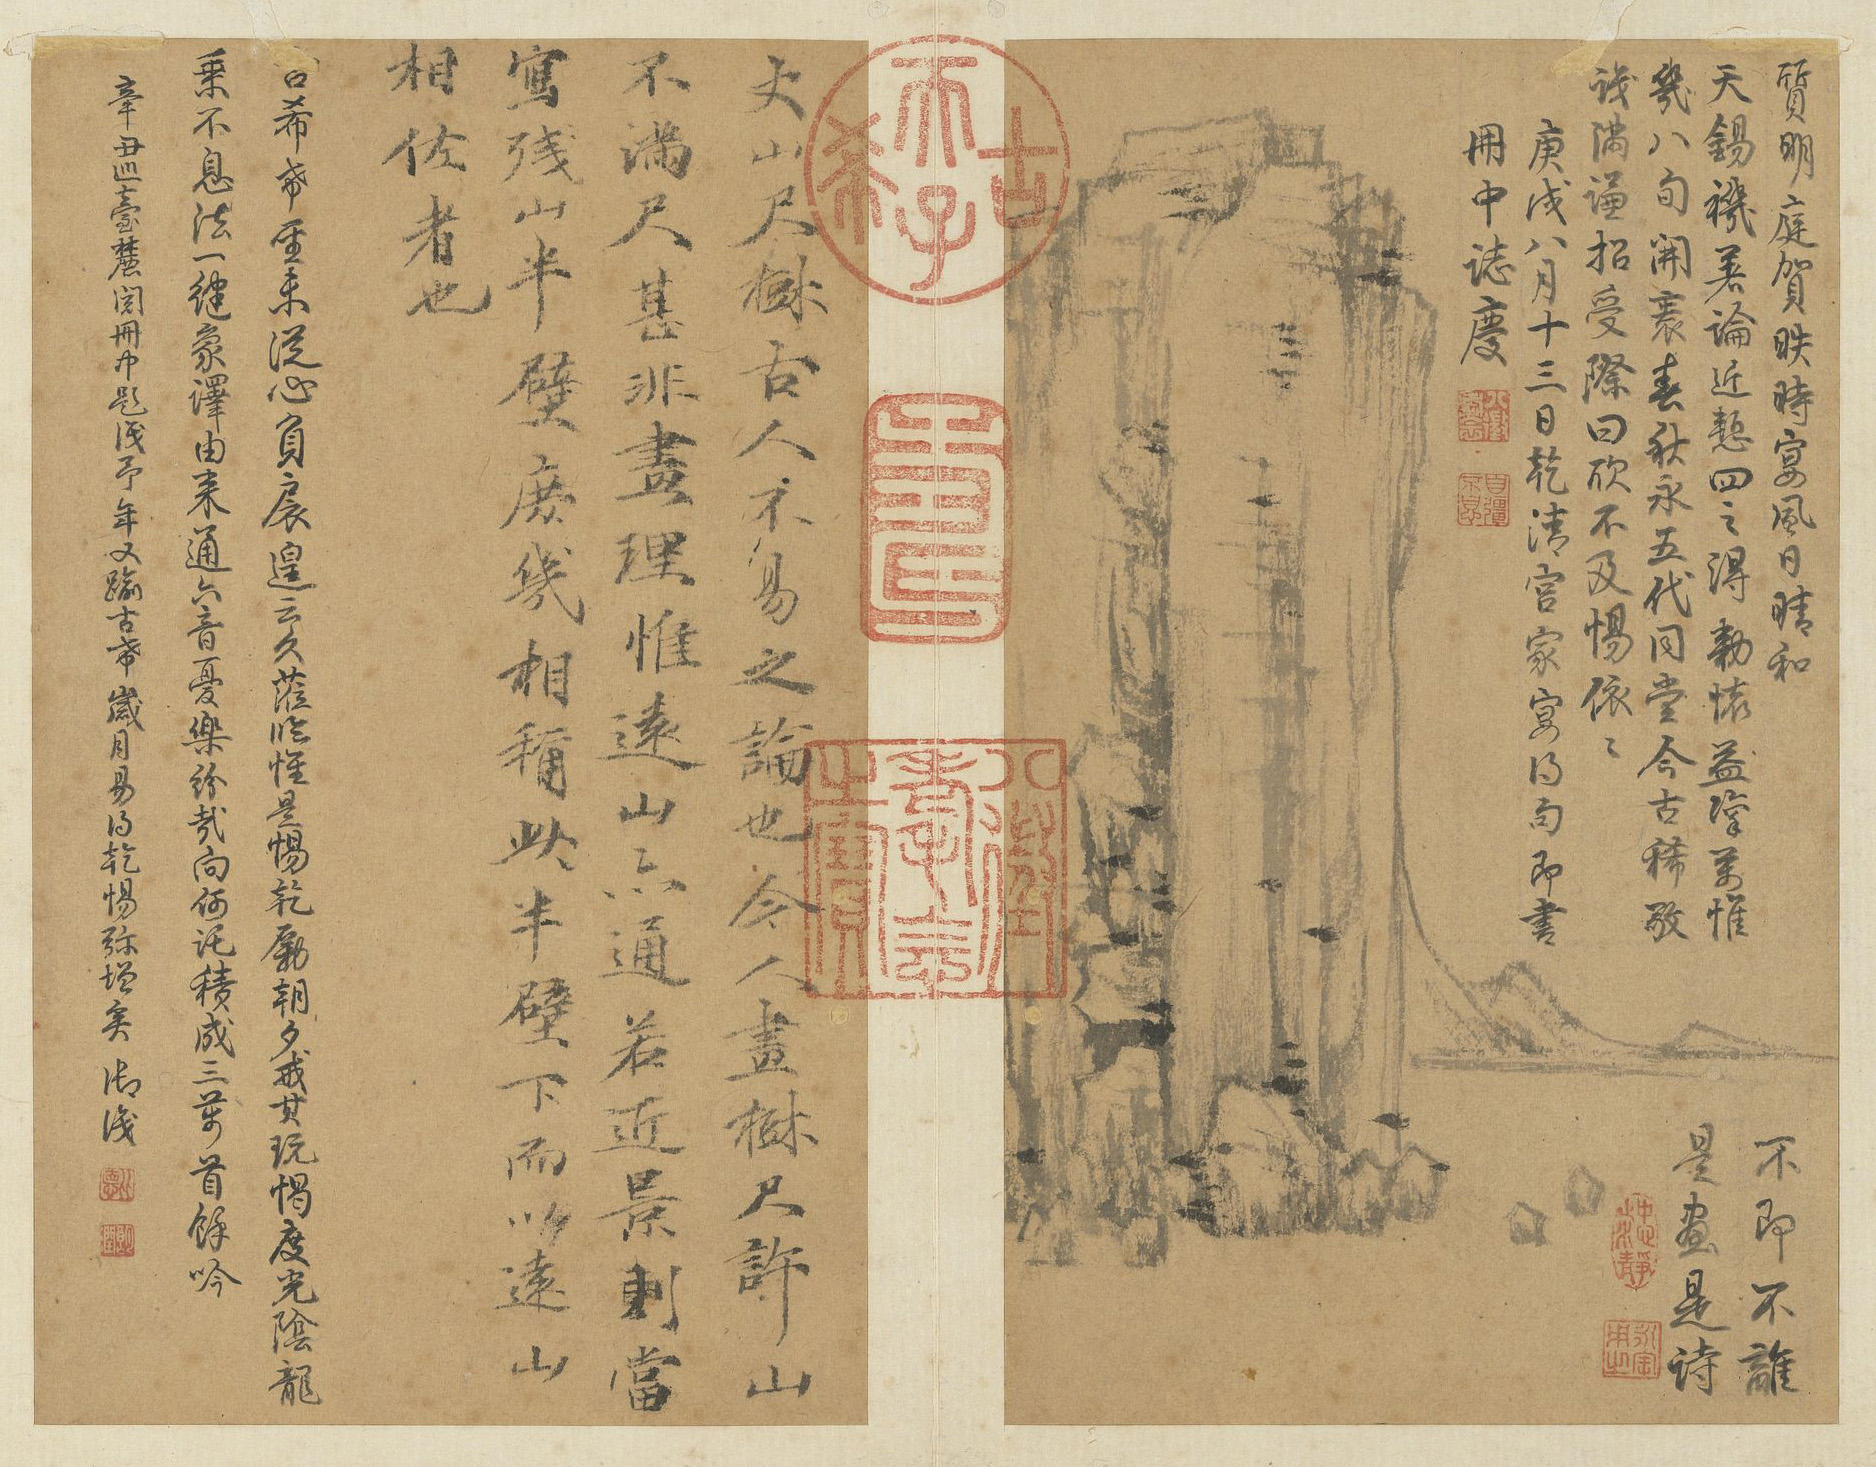 質明庭賀昳時宴風日晴和
天錫禨若論近慙四之得勅懷益凜萬惟
幾八旬開袠春秋永五代同堂今古稀敬
識滿謙招受際曰欣不及惕依〻
庚戌八月十三日乾清宮家宴得句即書
冊中誌慶
不即不離
是畫是詩
古希天子
壽
八徵耄念之寶
丈山尺樹古人不易之論也今人畫樹尺許山
不滿尺甚非畫理惟遠山亦通若近景則當
寫殘山半壁庶幾相稱此半壁下而以遠山
相佐者也
古希希聖未從心負扆遑云久蒞臨惟是惕乾勵朝夕戒其玩愒度光陰龍
乘不息法一健象譯由來通六音憂樂紛哉向何託積成三萬首餘吟
辛丑巡臺麓閱冊中題識予年又踰古希歲月易得乾惕彌增矣 御識